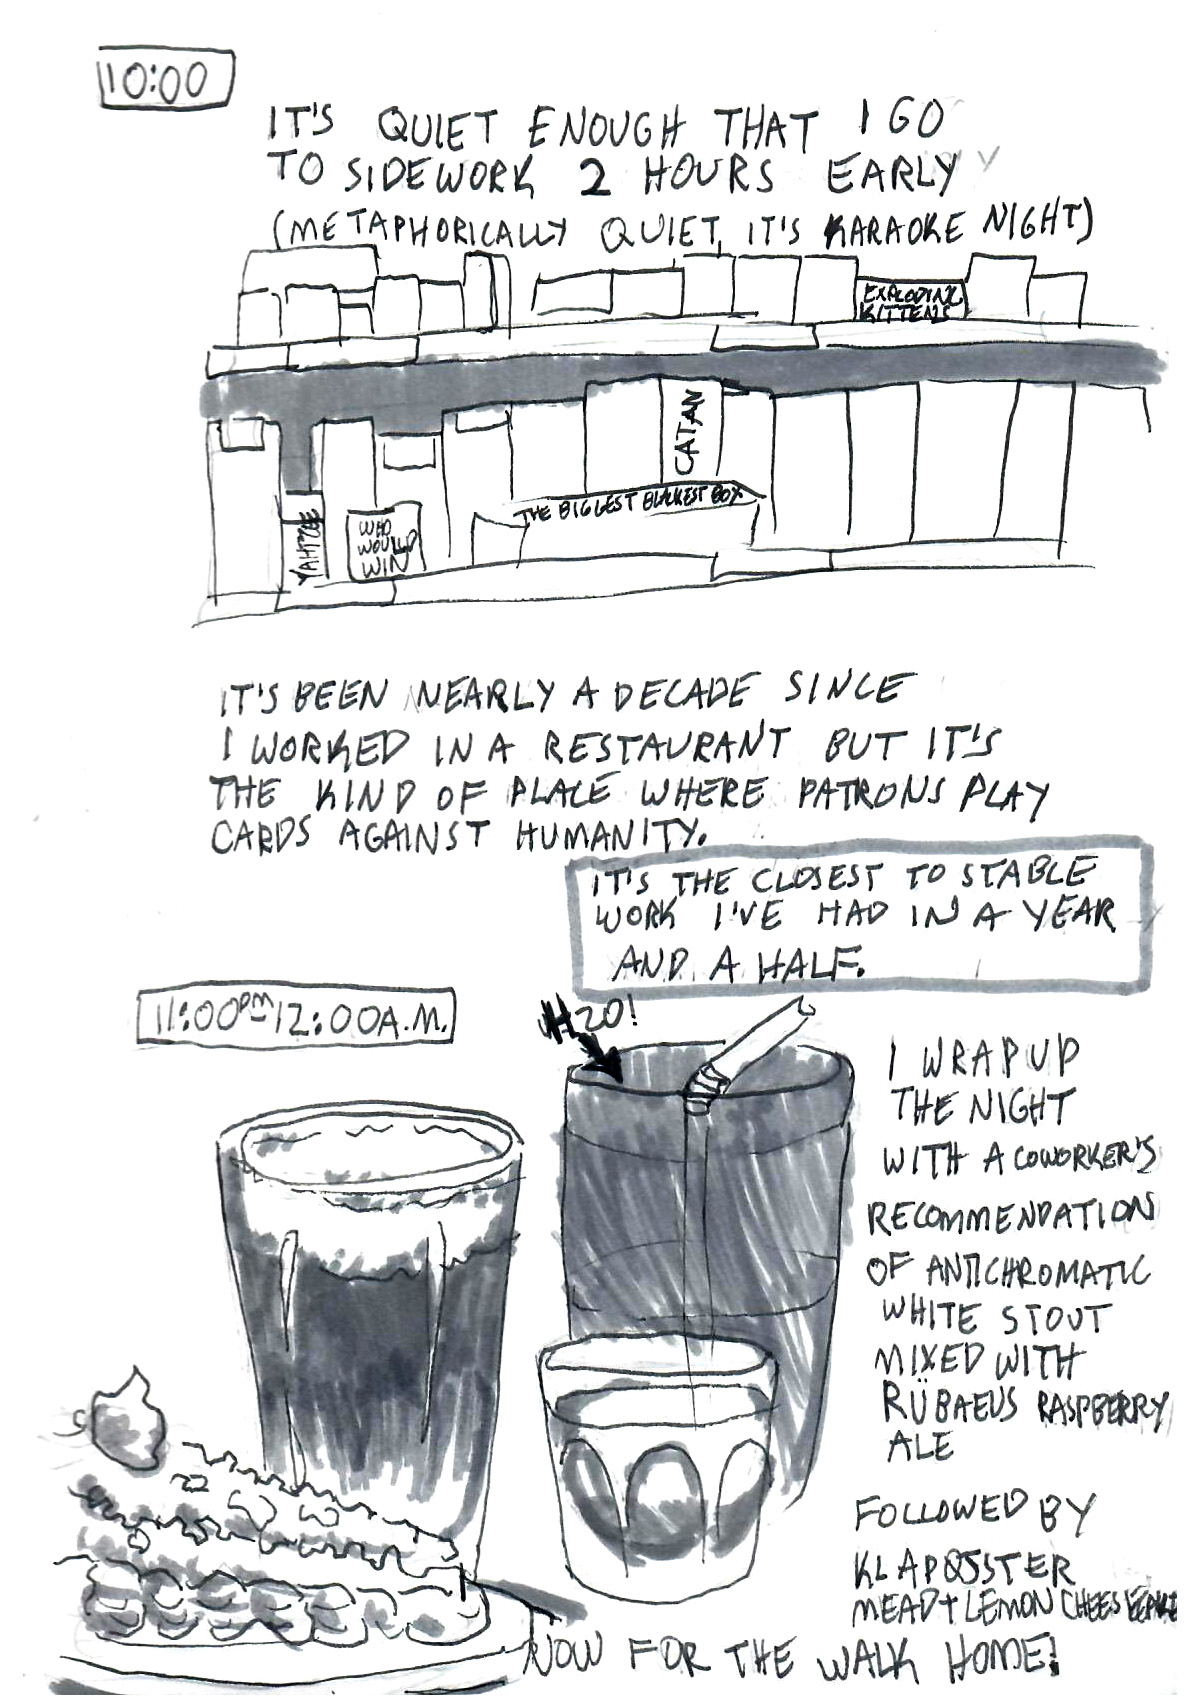 10:00
IT'S QUIET ENOUGH THAT I GO
TO SIDEWORK 2 HOURS EARLY
(METAPHORICALLY QUIET, IT'S KARAOKE NIGHT)
EXPLODING
KITTENS
CATAN
THE BIGGEST BLACKEST BOX
YAHTZEE
WHO
WOULD
WIN
IT'S BEEN NEARLY A DECADE SINCE
I WORKED IN A RESTAURANT BUT IT'S
THE KIND OF PLACE WHERE PATRONS PLAY
CARDS AGAINST HUMANITY.
IT'S THE CLOSEST TO STABLE
WORK I'VE HAD IN A YEAR
AND A HALF.
11:00PM-12:00A.M.
H20!
I WRAP UP
THE NIGHT
WITH A COWORKER'S
RECOMMENDATION
OF ANTICHROMATIC
WHITE STOUT
MIXED WITH
RÜBAEUS RASPBERRY
ALE
FOLLOWED BY
MEAD + LEMON CHEESECAKE
NOW FOR THE WALK HOME!